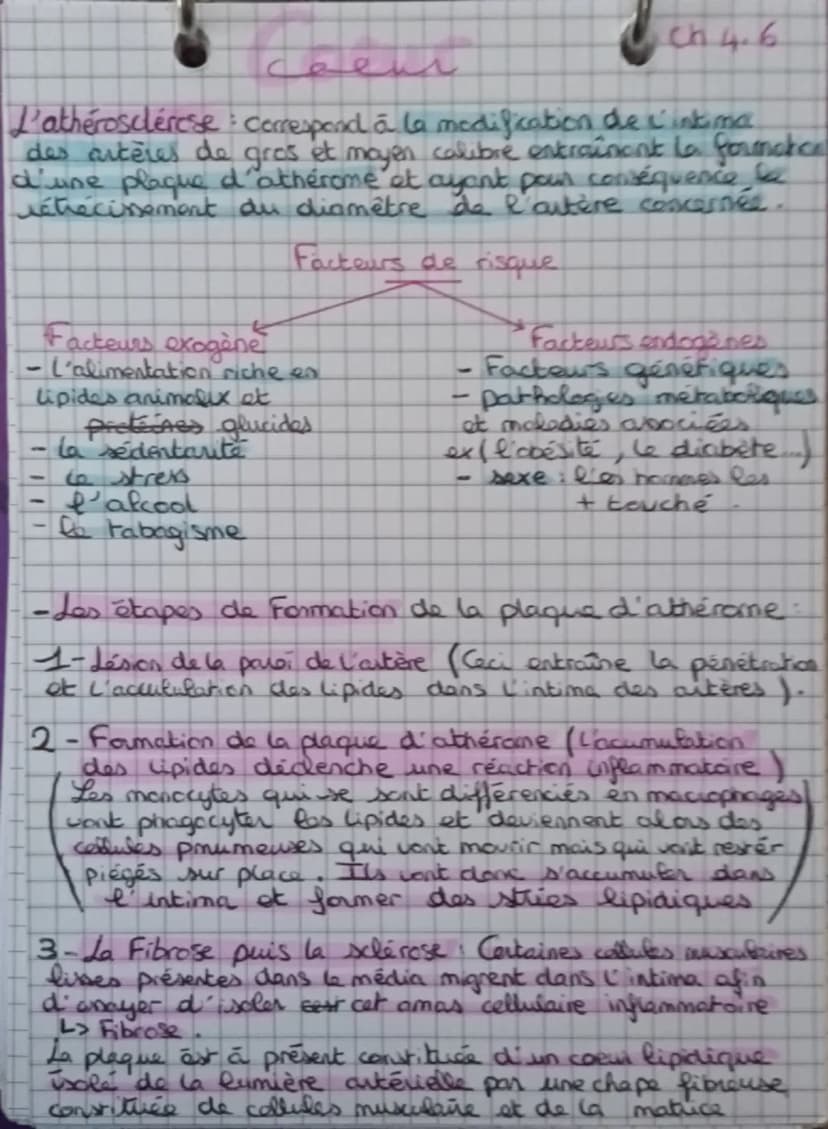 Coeur
Ch 4.6
L'athérosclérose : correspond à la modification de l'intima
des artères de gros et moyen calibre entraînant la formation
d'une plaque d'athérome et ayant pour conséquence le
rétrécissement du diamètre de l'artère concernée.
Facteurs de risque
Facteurs exogène
- L'alimentation riche en
lipides animaux et
protéines glucides
- la sédentarité
- le stress
- l'alcool
- le tabagisme
Facteurs endogènes
- Facteurs génétiques
- pathologies métaboliques
et maladies associées
ex (l'obésité, le diabète...)
- sexe : les hommes les
+ touché.
- Les étapes de Formation de la plaque d'athérome :
1 - Lésion de la paroi de l'artère (Ceci entraîne la pénétration
et l'accumulation des lipides dans l'intima des artères).
2 - Formation de la plaque d'athérome (L'acumulation
des lipides déclenche une réaction inflammatoire)
(Les monocytes qui se sont différenciés en macrophages
vont phagocyter les lipides et deviennent alors des
cellules pnumeuses qui vont mourir mais qui vont rester
piégés sur place. Ils vont donc s'accumuler dans
l'intima et former des stries lipidiques)
3 - La Fibrose puis la sclérose : Certaines cellules musculaires
lisses présentes dans le média migrent dans l'intima afin
d'essayer d'isoler cet amas cellulaire inflammatoire
↳ Fibrose.
La plaque est à présent constituée d'un coeur lipidique
isolé de la lumière artérielle par une chape fibreuse
constituée de cellules musculaire et de la matrice